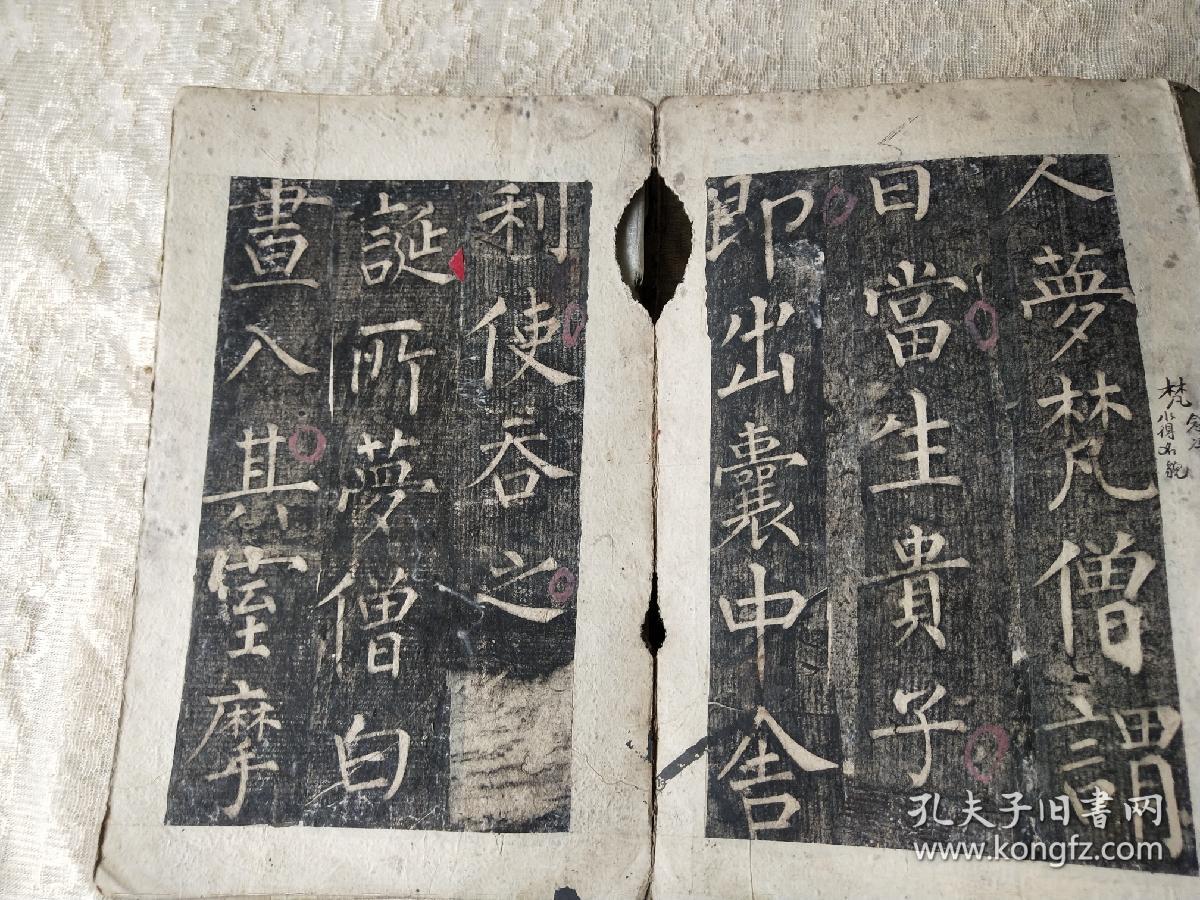 人夢梵僧謂
曰當生貴子
即出囊中舍
利使吞之
誕所夢僧白
晝入其室摩
梵
孔夫子旧书网
www.kongfz.com